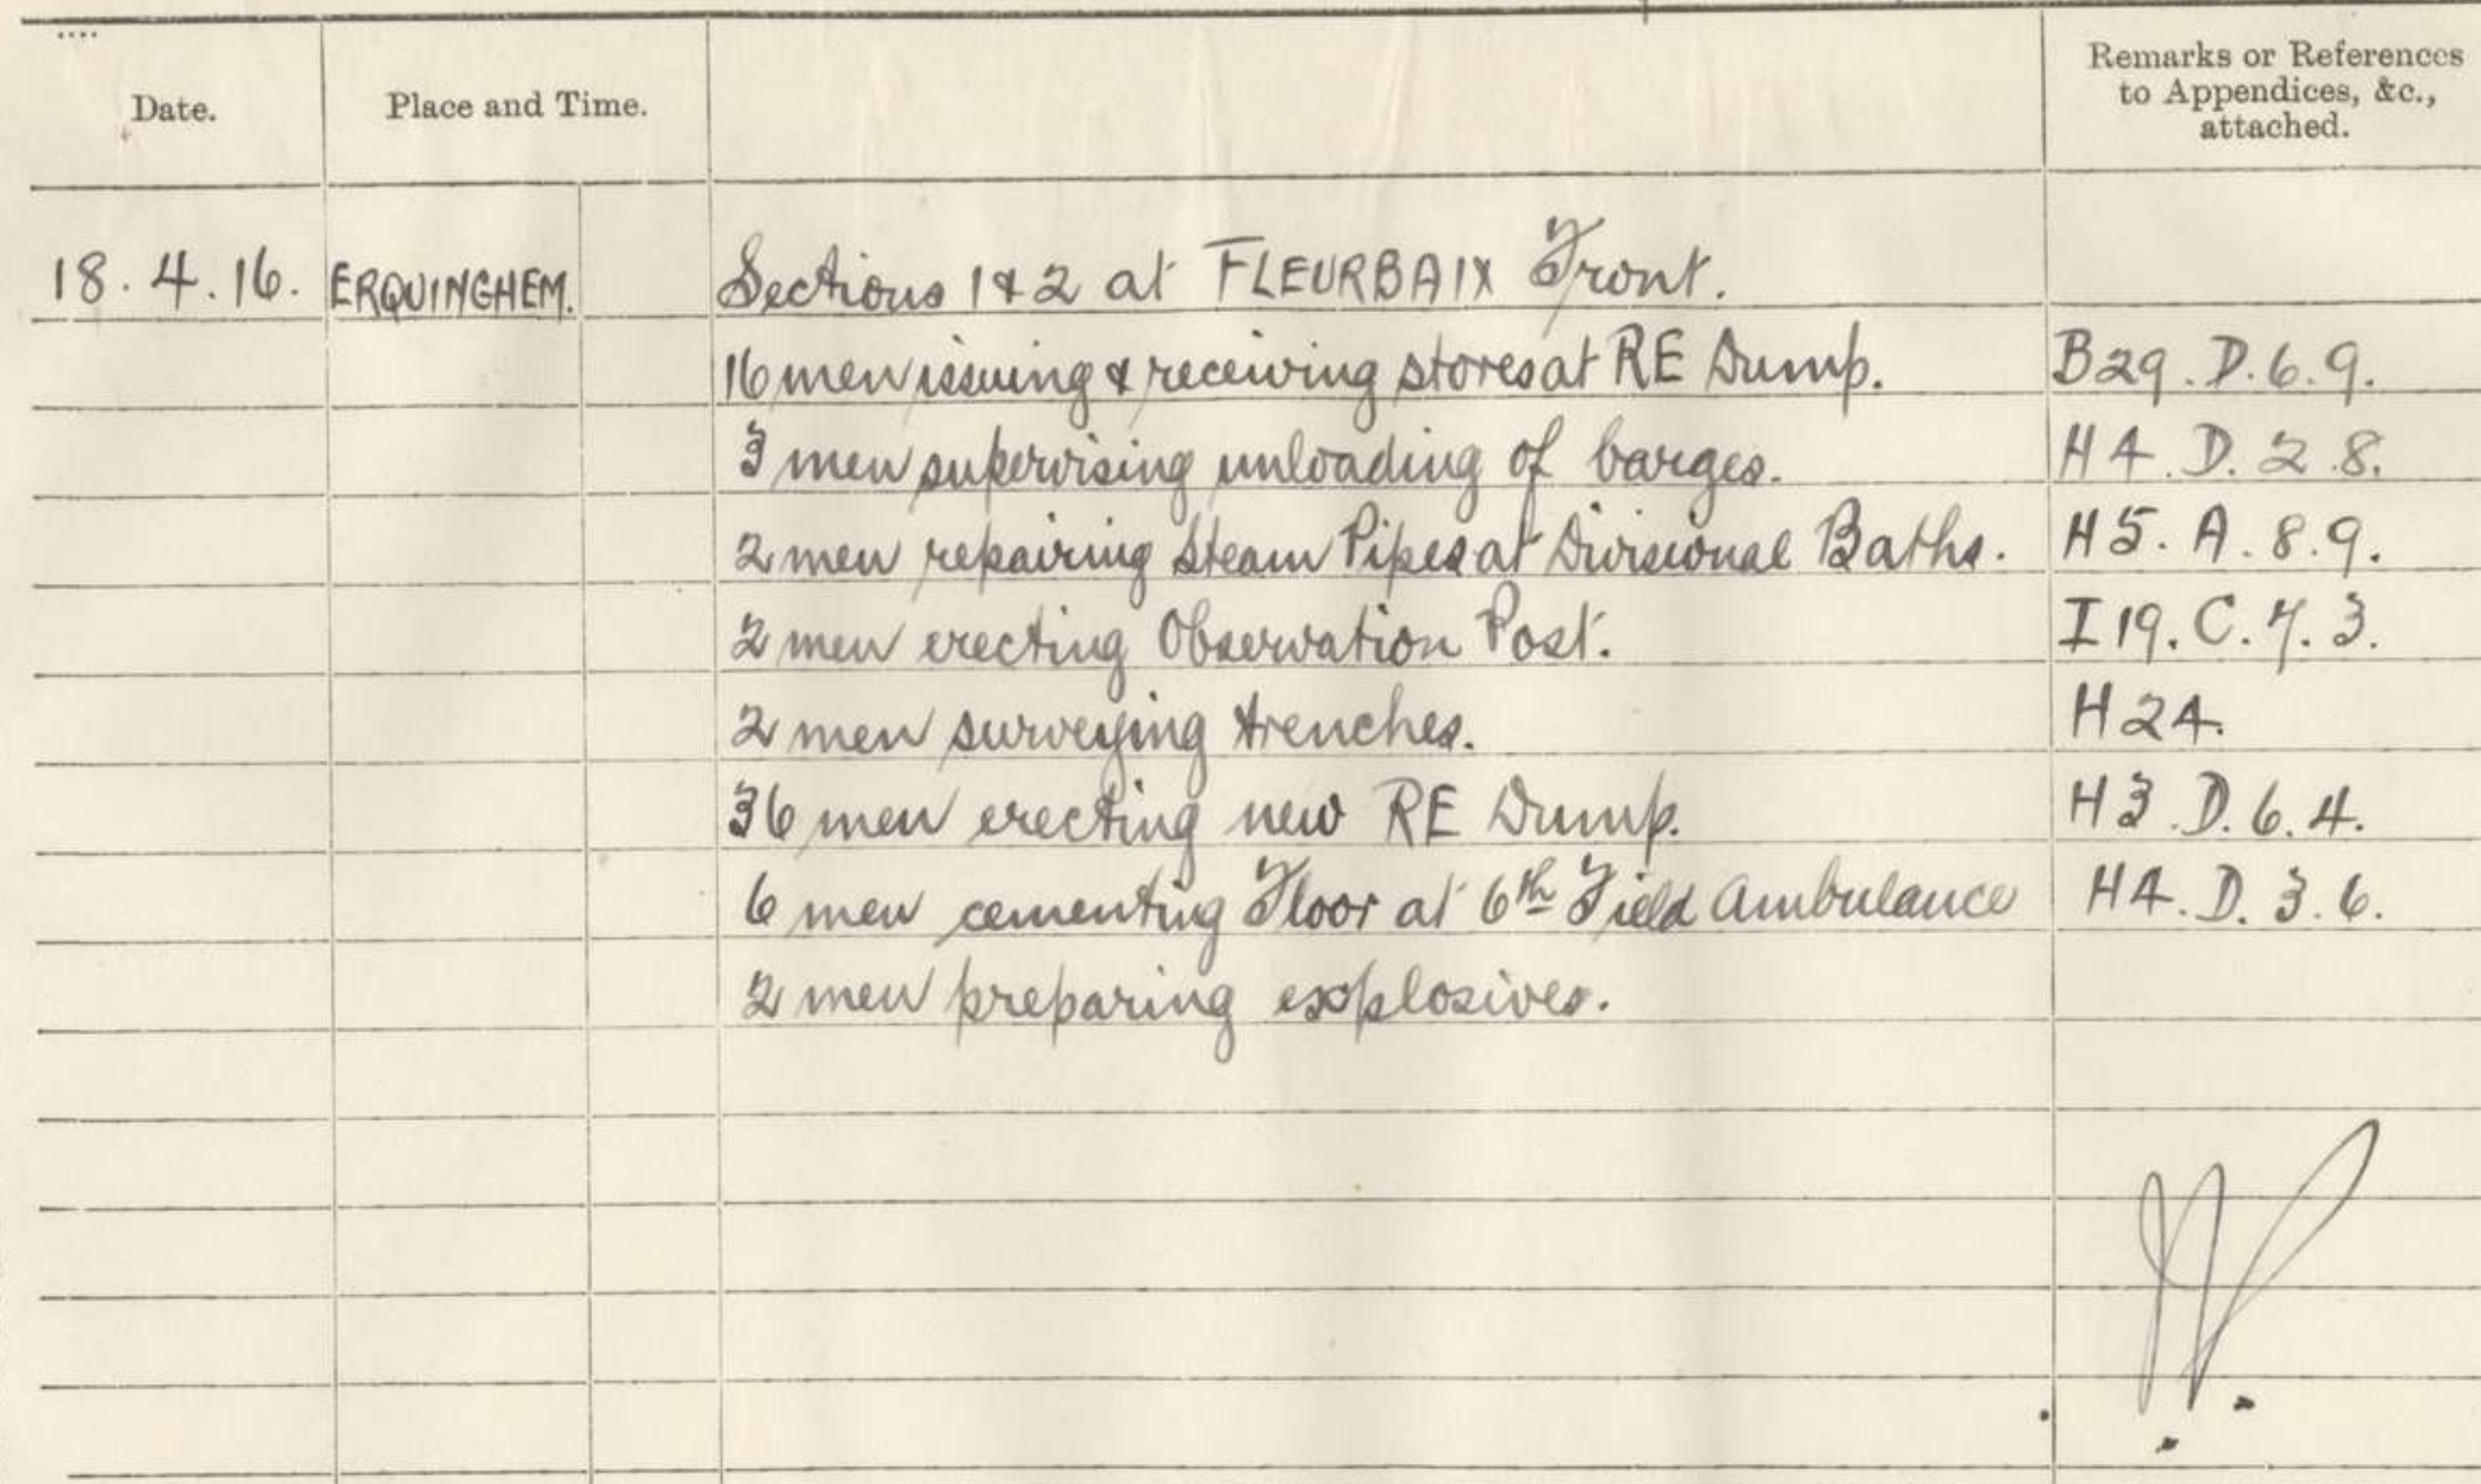 Date. Place and Time. Remarks or References
to Appendices, &c.,
attached.
18.4.16. ERQUINGHEM. Sections 1 & 2 at FLEURBAIX Front.
16 men issuing & receiving stores at RE Dump. B29.D.6.9.
3 men supervising unloading of barges. H4.D.2.8.
2 men repairing Steam Pipes at Divisional Baths. H5.A.8.9.
2 men erecting Observation Post. I19.C.7.3.
2 men surveying trenches. H24.
36 men erecting new RE Dump. H3.D.6.4.
6 men cementing Floor at 6th Field Ambulance H4.D.3.6.
2 men preparing explosives.